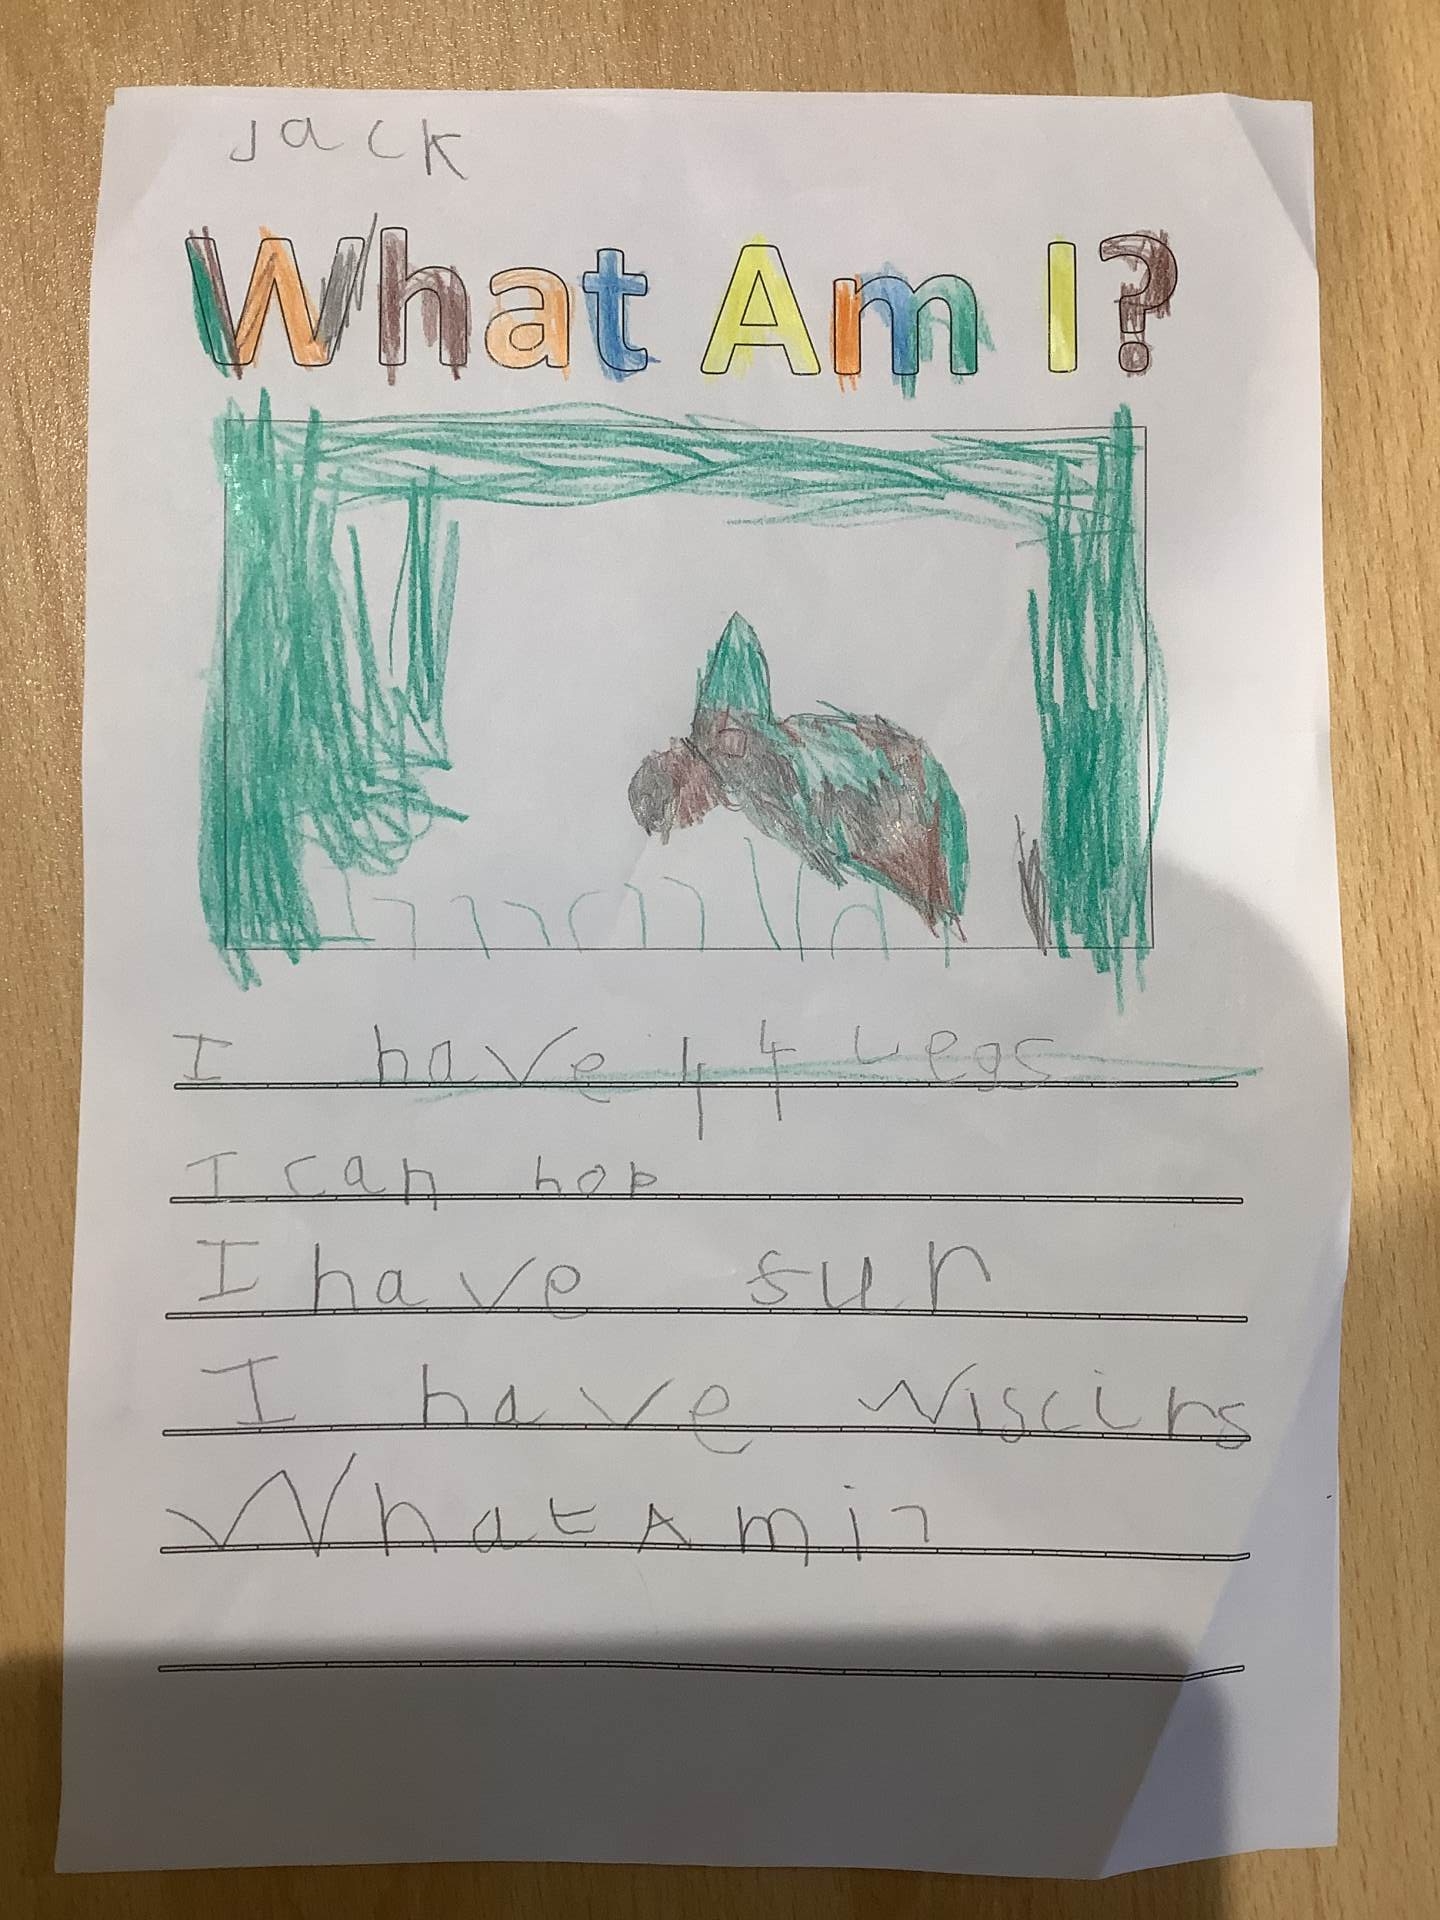 Jack
What Am I?
I have 4 4 Legs
I can hop
I have fur
I have Wiscirs
What Am i?